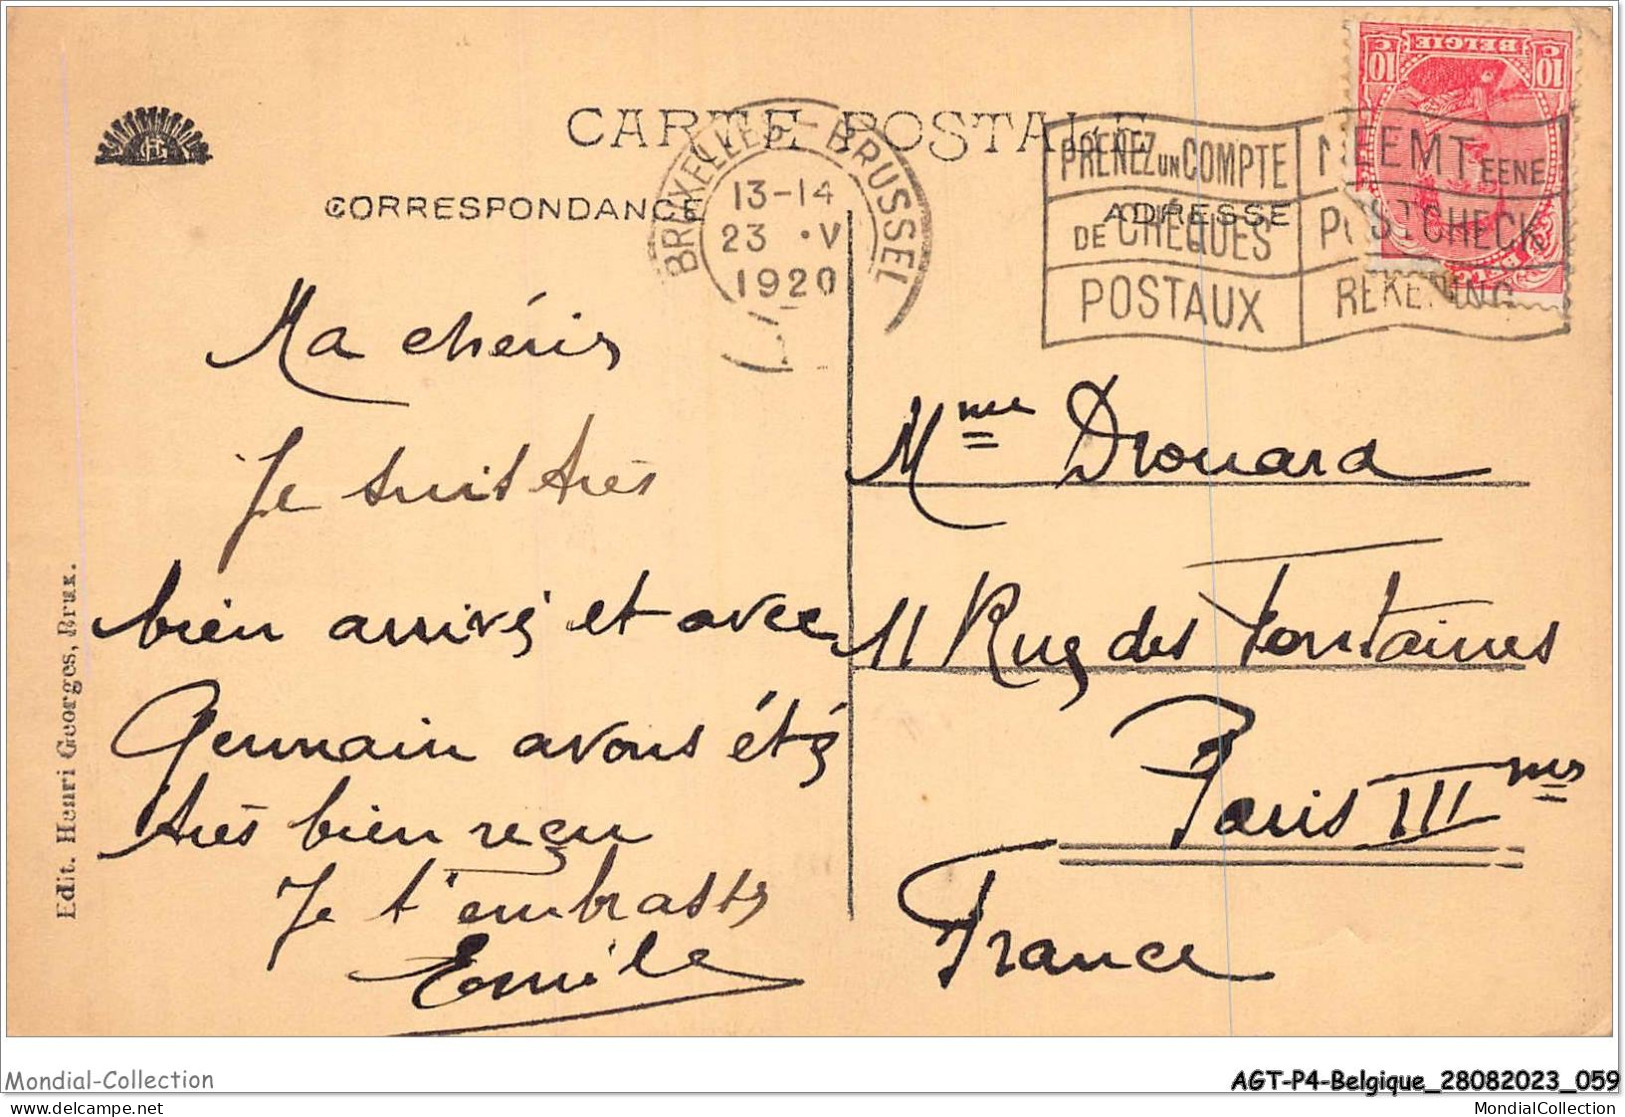 CARTE POSTALE
CORRESPONDANCE
ADRESSE
BRUXELLES - BRUSSEL
13-14
23 · V
1920
PRENEZ UN COMPTE
DE CHÈQUES
POSTAUX
NEEMT EENE
POSTCHECK
REKENING
10 C BELGIE C 10
HG
Ma chérie
Je suis très
bien arrivé et avec
Germain avons été
très bien reçu
Je t'embrasse
Emile
Mme Drouard
11 Rue des Fontaines
Paris IIIme
France
Edit. Henri Georges, Brux.
Mondial-Collection
AGT-P4-Belgique_28082023_059
delcampe.net
MondialCollection